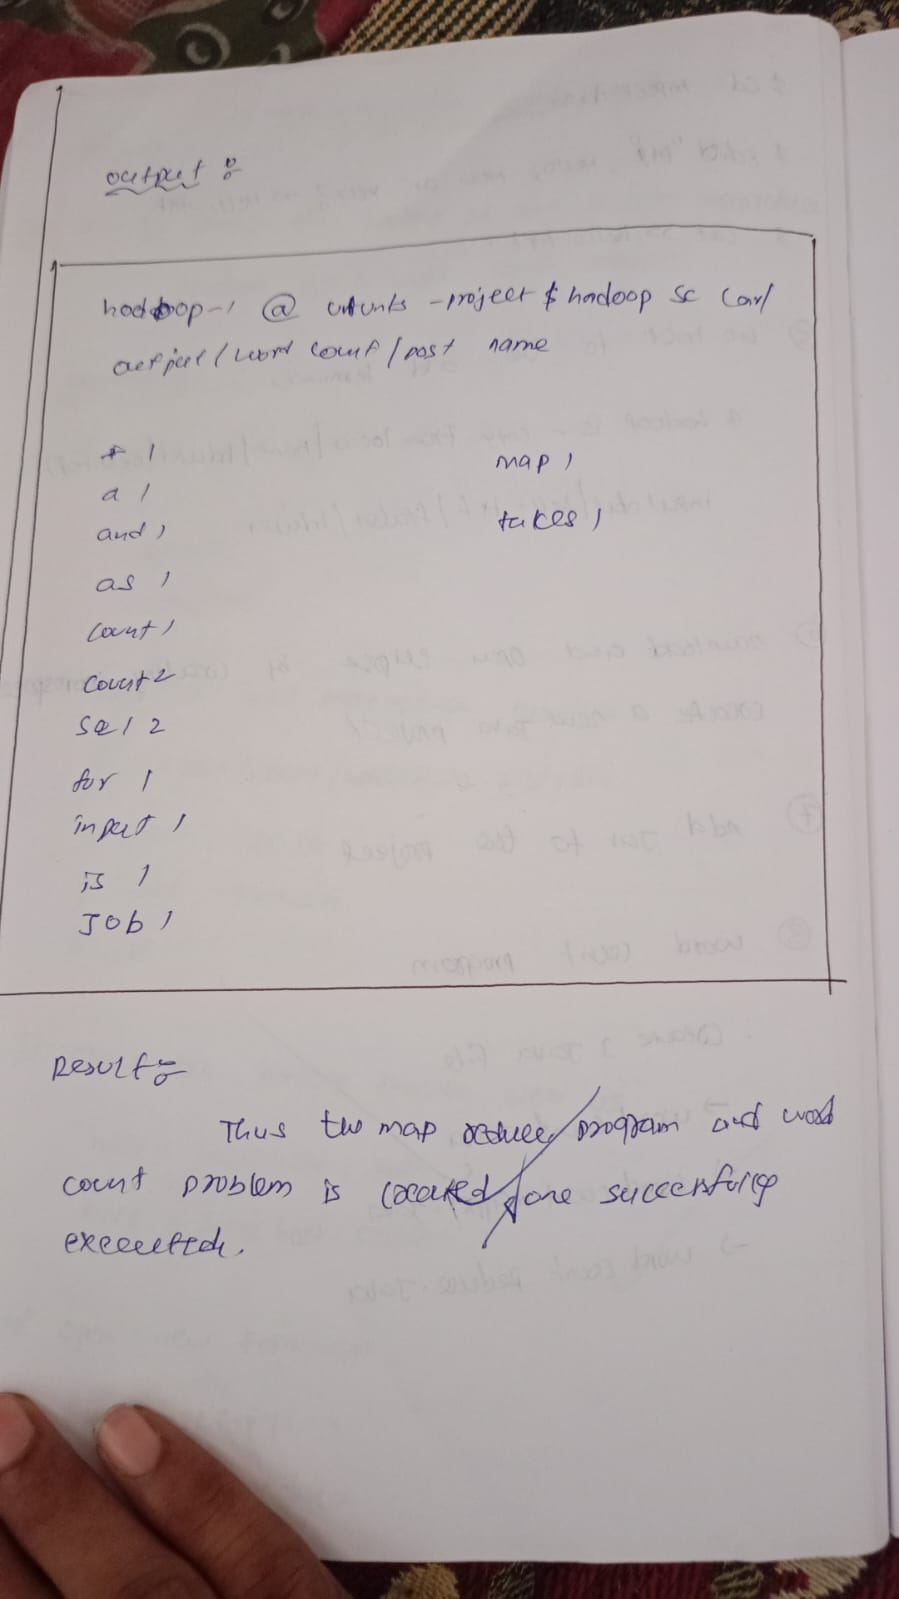 output :
hadoop-1 @ ubunts -project $ hadoop sc car/
/ word count / post name
* 1
a 1
and 1
as 1
count 1
count 2
sql 2
for 1
input 1
is 1
Job 1
map 1
takes 1
Result :
Thus the map reduce program and word
count problem is located done successfully
executed.